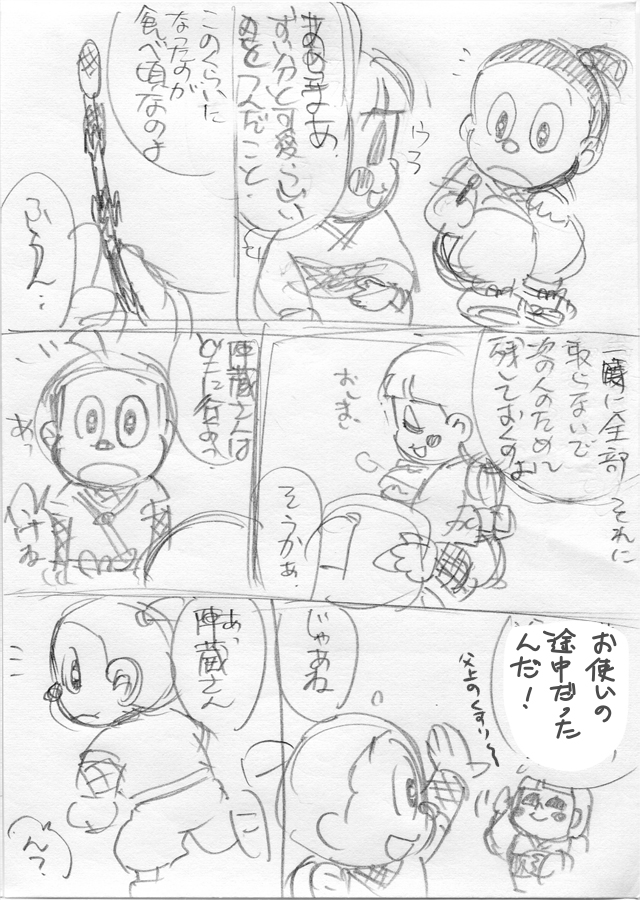 あのまあ、
ずい分と可愛らしい
こと
このくらいに
なったのが
食べ頃なのよ
ふうん…
一時に全部
取らないで
それに
次の人のために
残しておくのよ
おしまい
そうかぁ
陣蔵さんは
どこに行くの?
あっ
いけね
お使いの
途中だった
んだ!
父上のくすり〜
じゃあね
あっ
陣蔵さん
ん?